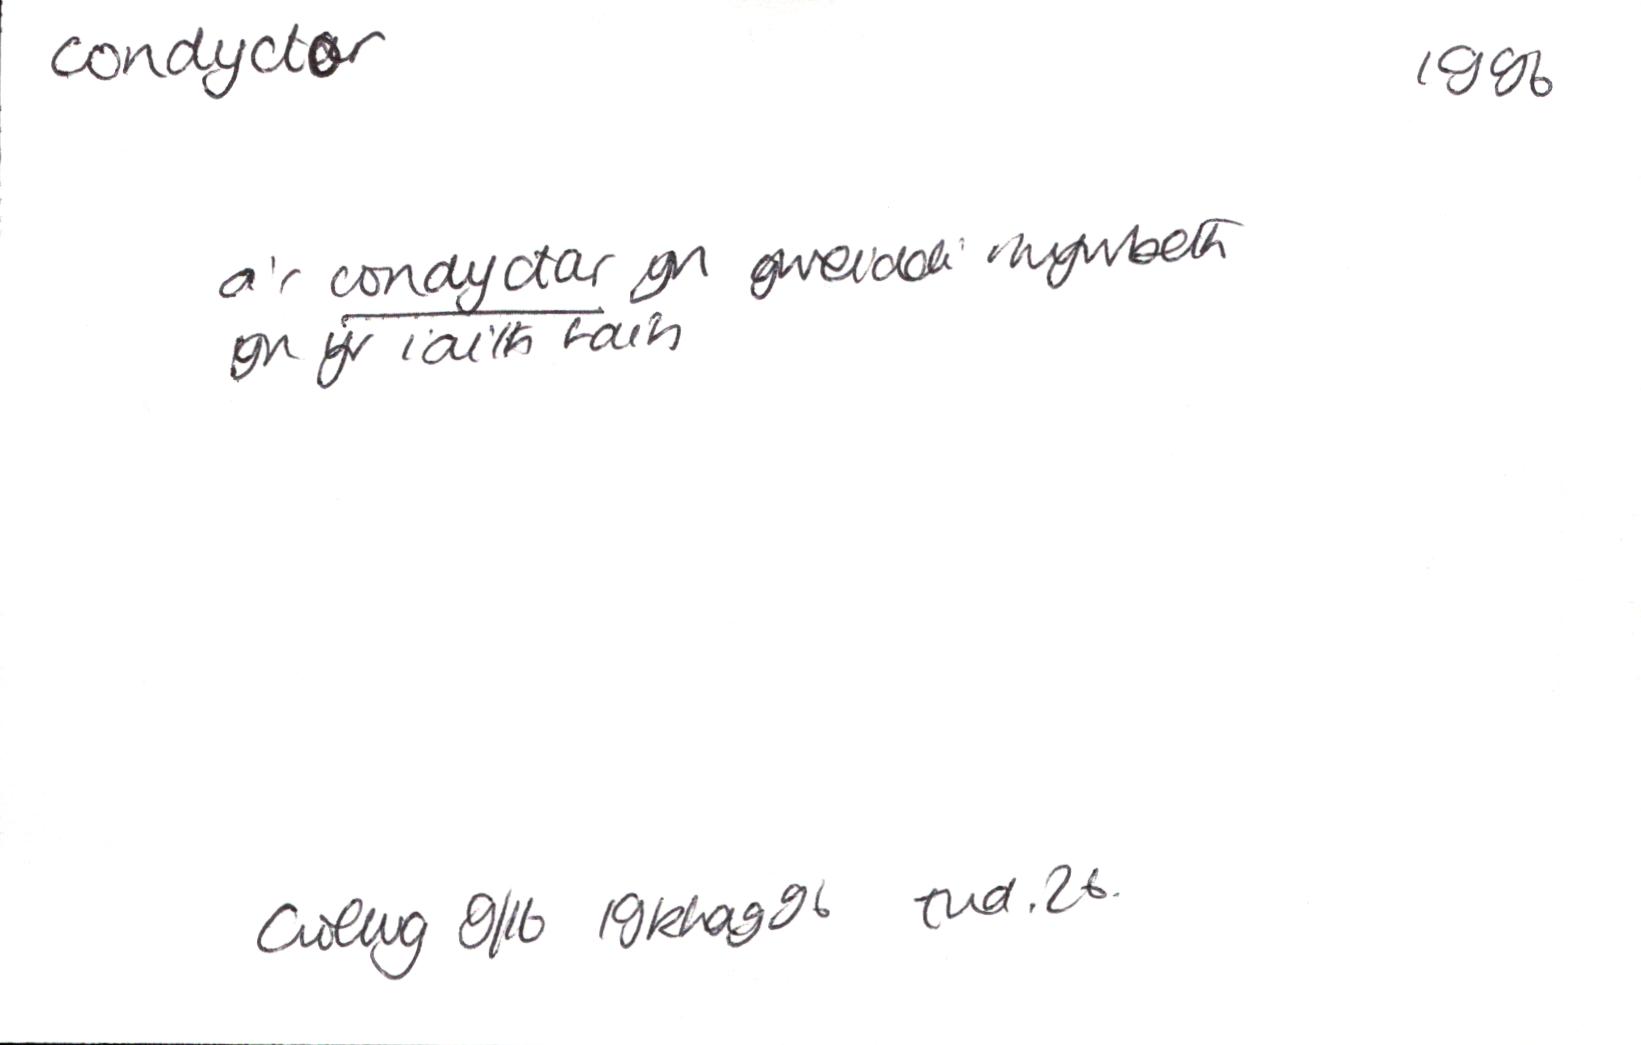 condyctor 1996
a'r condyctar yn gweiddi rhywbeth
yn yr iaith fain
Golwg 9/16 19Rhag96 tud. 26.